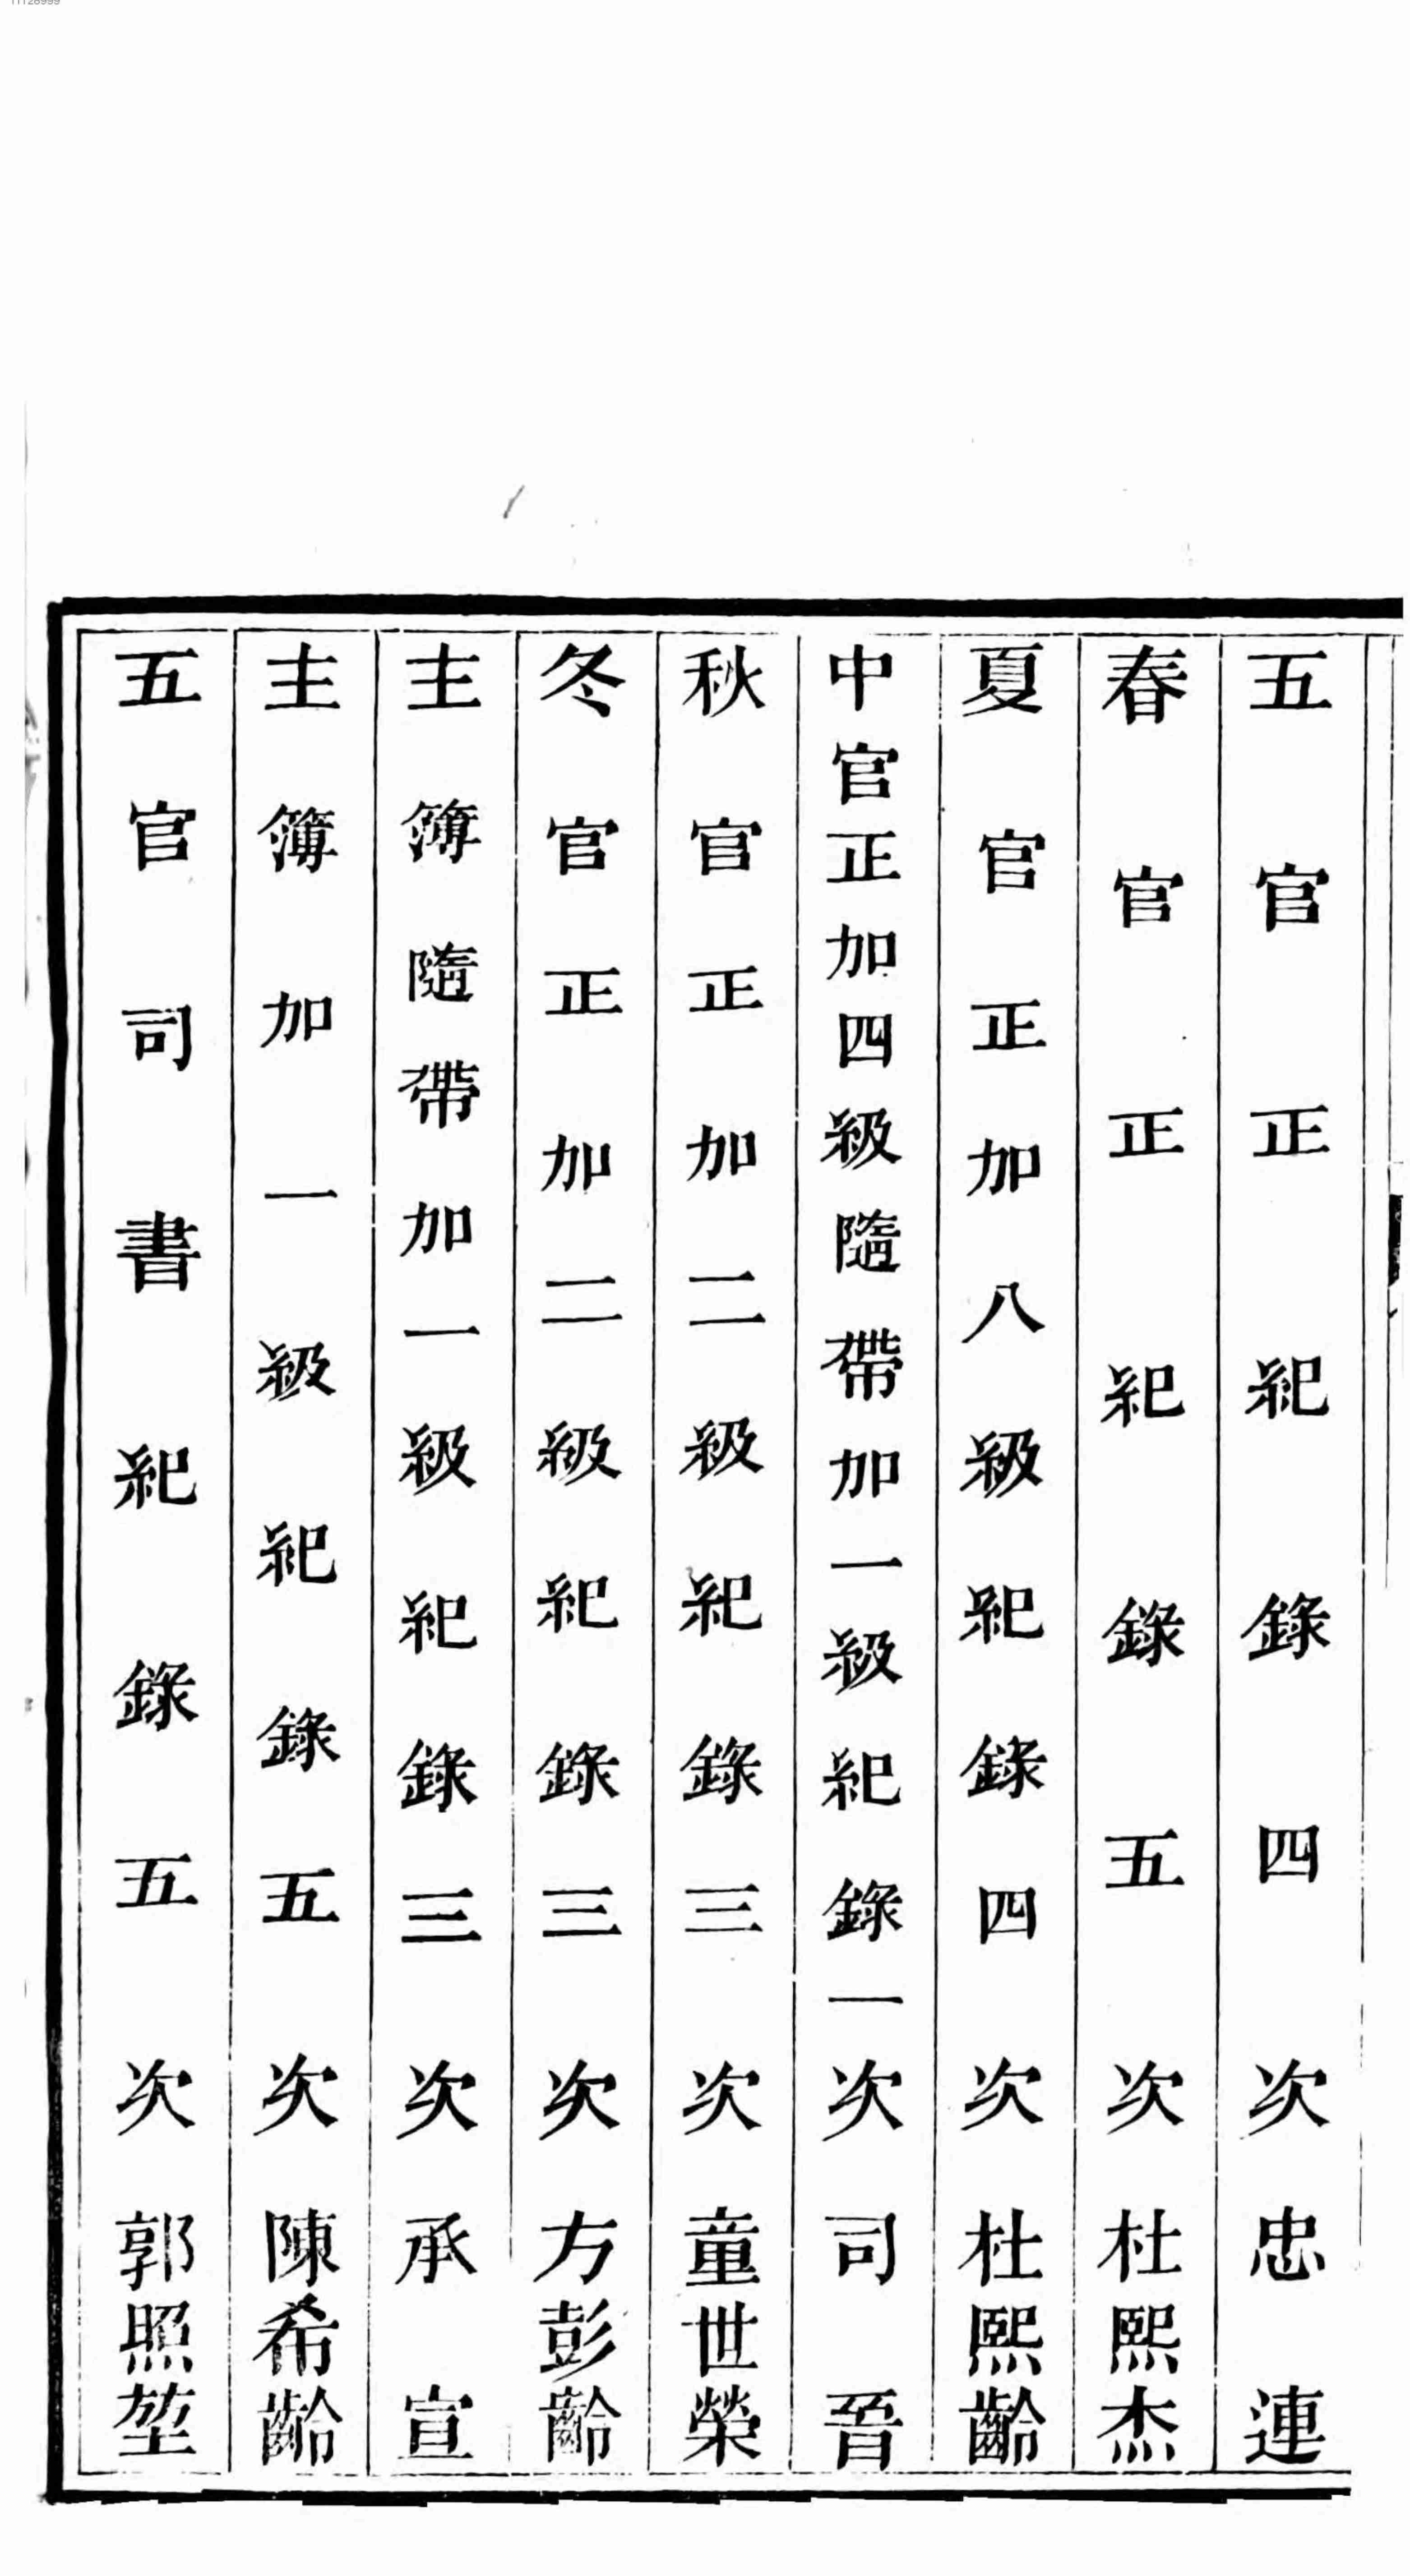 五官正紀錄四次忠連
春官正紀錄五次杜熙杰
夏官正加八級紀錄四次杜熙齡
中官正加四級隨帶加一級紀錄一次司晉
秋官正加二級紀錄三次童世榮
冬官正加二級紀錄三次方彭齡
主簿隨帶加一級紀錄三次承宣
主簿加一級紀錄五次陳希齡
五官司書紀錄五次郭照堃